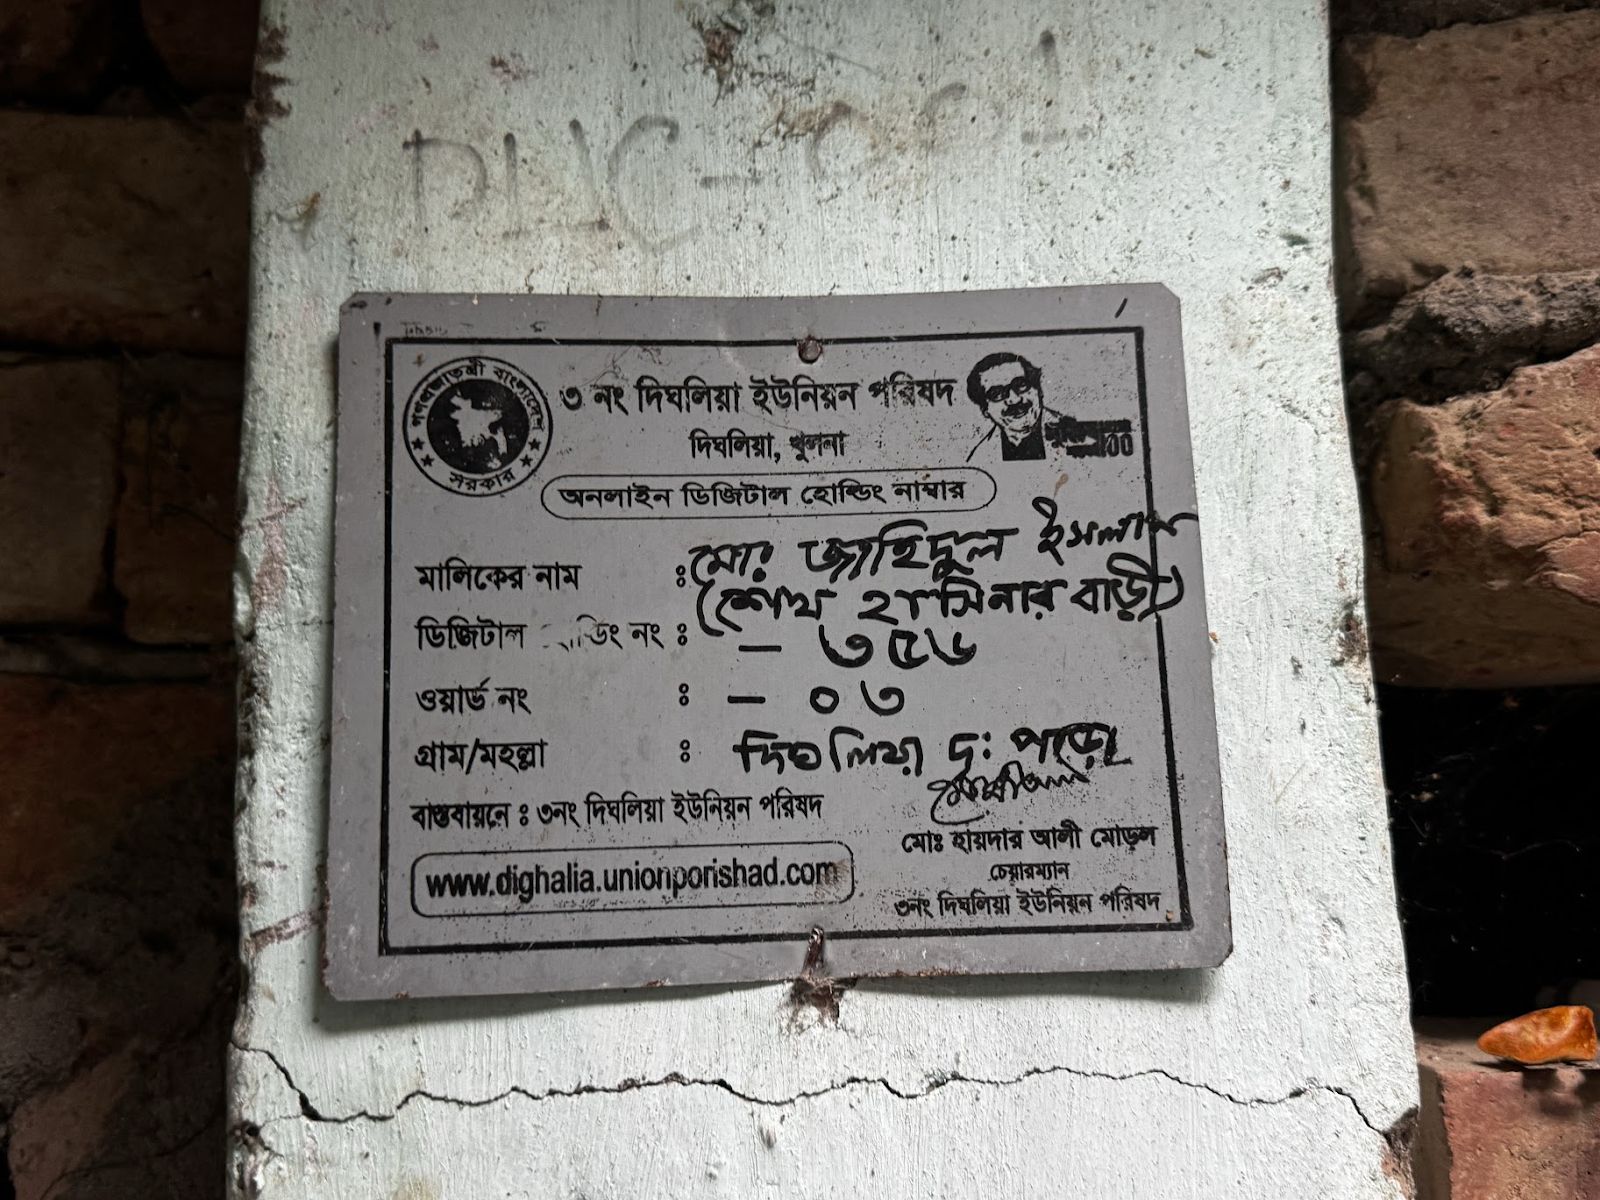 DUC-001
গণপ্রজাতন্ত্রী বাংলাদেশ
সরকার
৩ নং দিঘলিয়া ইউনিয়ন পরিষদ
দিঘলিয়া, খুলনা
100
অনলাইন ডিজিটাল হোল্ডিং নাম্বার
মালিকের নাম : মোঃ জাহিদুল ইসলাম
(শেখ হাসিনার বাড়ী)
ডিজিটাল হোল্ডিং নং : - ৩৫৬
ওয়ার্ড নং : - ০৩
গ্রাম/মহল্লা : দিঘলিয়া দঃ পাড়া
বাস্তবায়নে : ৩নং দিঘলিয়া ইউনিয়ন পরিষদ
www.dighalia.unionporishad.com
মোঃ হায়দার আলী মোড়ল
চেয়ারম্যান
৩নং দিঘলিয়া ইউনিয়ন পরিষদ